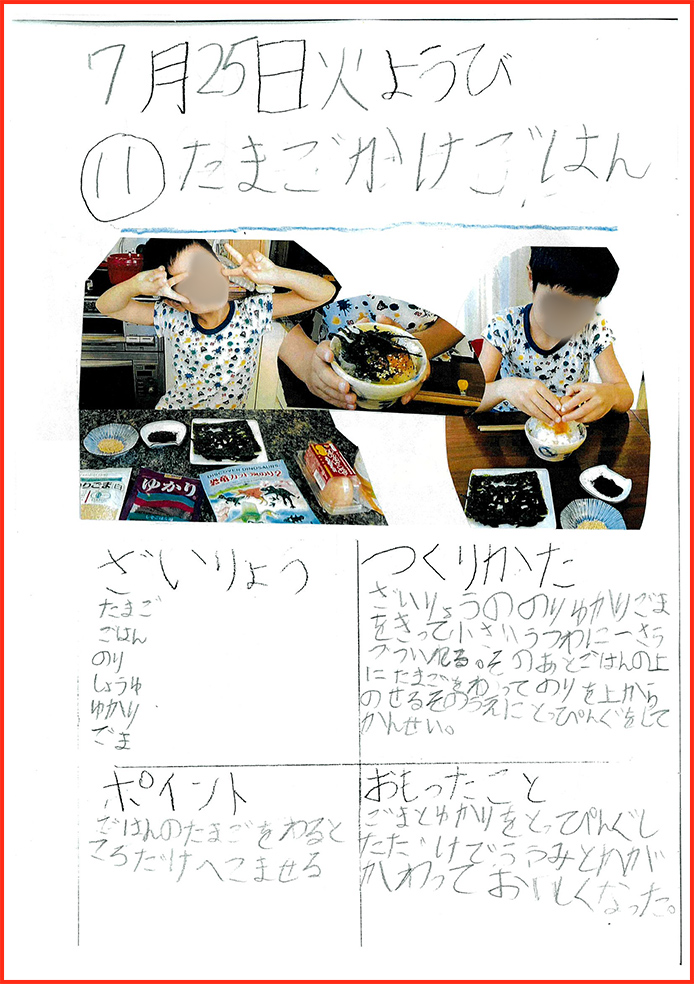 7月25日火ようび
⑪たまごかけごはん
ゆかり
DISCOVER DINOSAURS
ざいりょう
たまご
ごはん
のり
しょうゆ
ゆかり
ごま
つくりかた
ざいりょうののりゆかりごま
をきって小さいうつわに一さら
づついれる。そのあとごはんの上
にたまごをわってのりを上から
のせるそのうえにとっぴんぐをして
かんせい。
ポイント
ごはんのたまごをわると
ころだけへこませる
おもったこと
ごまとゆかりをとってぴんぐし
ただけでうつみとかが
かわっておいしくなった。